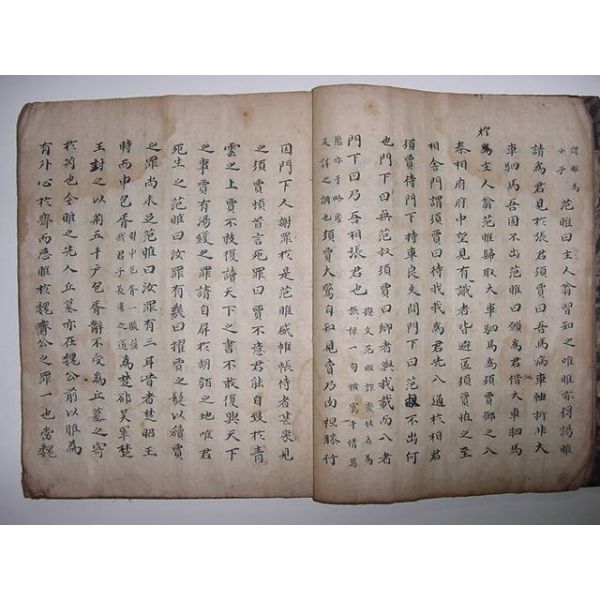 謂雎為
小子
范雎曰主人翁習知之唯雎亦得謁雎
請為君見於張君須賈曰吾馬病車軸折非大
車駟馬吾固不出范雎曰願為君借大車駟馬
於為主人翁范雎歸取大車駟馬為須賈御之入
秦相府府中望見有識者皆避匿須賈怪之至
相舍門謂須賈曰待我我為君先入通於相君
須賈待門下持車良久問門下曰范叔不出何
也門下曰無范叔須賈曰鄉者與我載而入者
門下曰乃吾相張君也
須賈大驚自知見賣乃肉袒膝行
因門下人謝罪於是范雎盛帷帳侍者甚眾見
之須賈頓首言死罪曰賈不意君能自致於青
雲之上賈不敢復讀天下之書不敢復與天下
之事賈有湯鑊之罪請自屏於胡貉之地唯君
死生之范雎曰汝罪有幾曰擢賈之髮以續賈
之罪尚未足范雎曰汝罪有三耳昔者楚昭王
時而申包胥
然君子長者之道
為楚卻吳軍楚
王封之以荊五千戶包胥辭不受為丘墓之寄
於荊也今雎之先人丘墓亦在魏公前以雎為
有外心於齊而惡雎於魏齊公之罪一也當魏